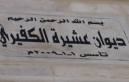 بسم الله الرحمن الرحيم
ديوان عشيرة الكفيري
تأسس